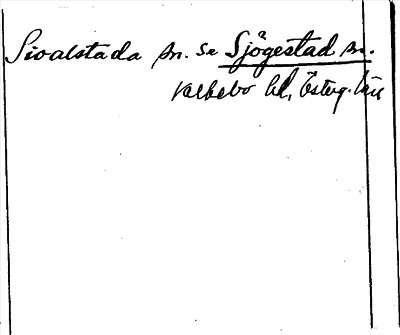 Sioalstada sn. Se Sjögestad sn.
Valkebo hd, Österg. län